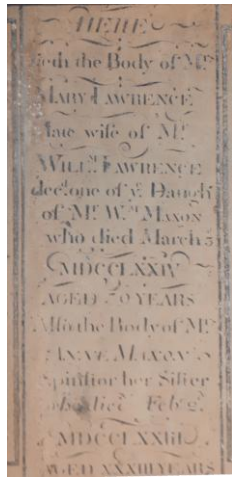 HERE
lieth the Body of Mrs
MARY LAWRENCE
late wife of Mr
WILLm LAWRENCE
decd one of ye Daugh
of Mr Wm MAXON
who died March
MDCCLXXIV
AGED 39 YEARS
Also the Body of Mrs
ANNE MAXON
Spinstor her Sister
who died Feb 2d
MDCCLXXIII
AGED XXXIII YEARS